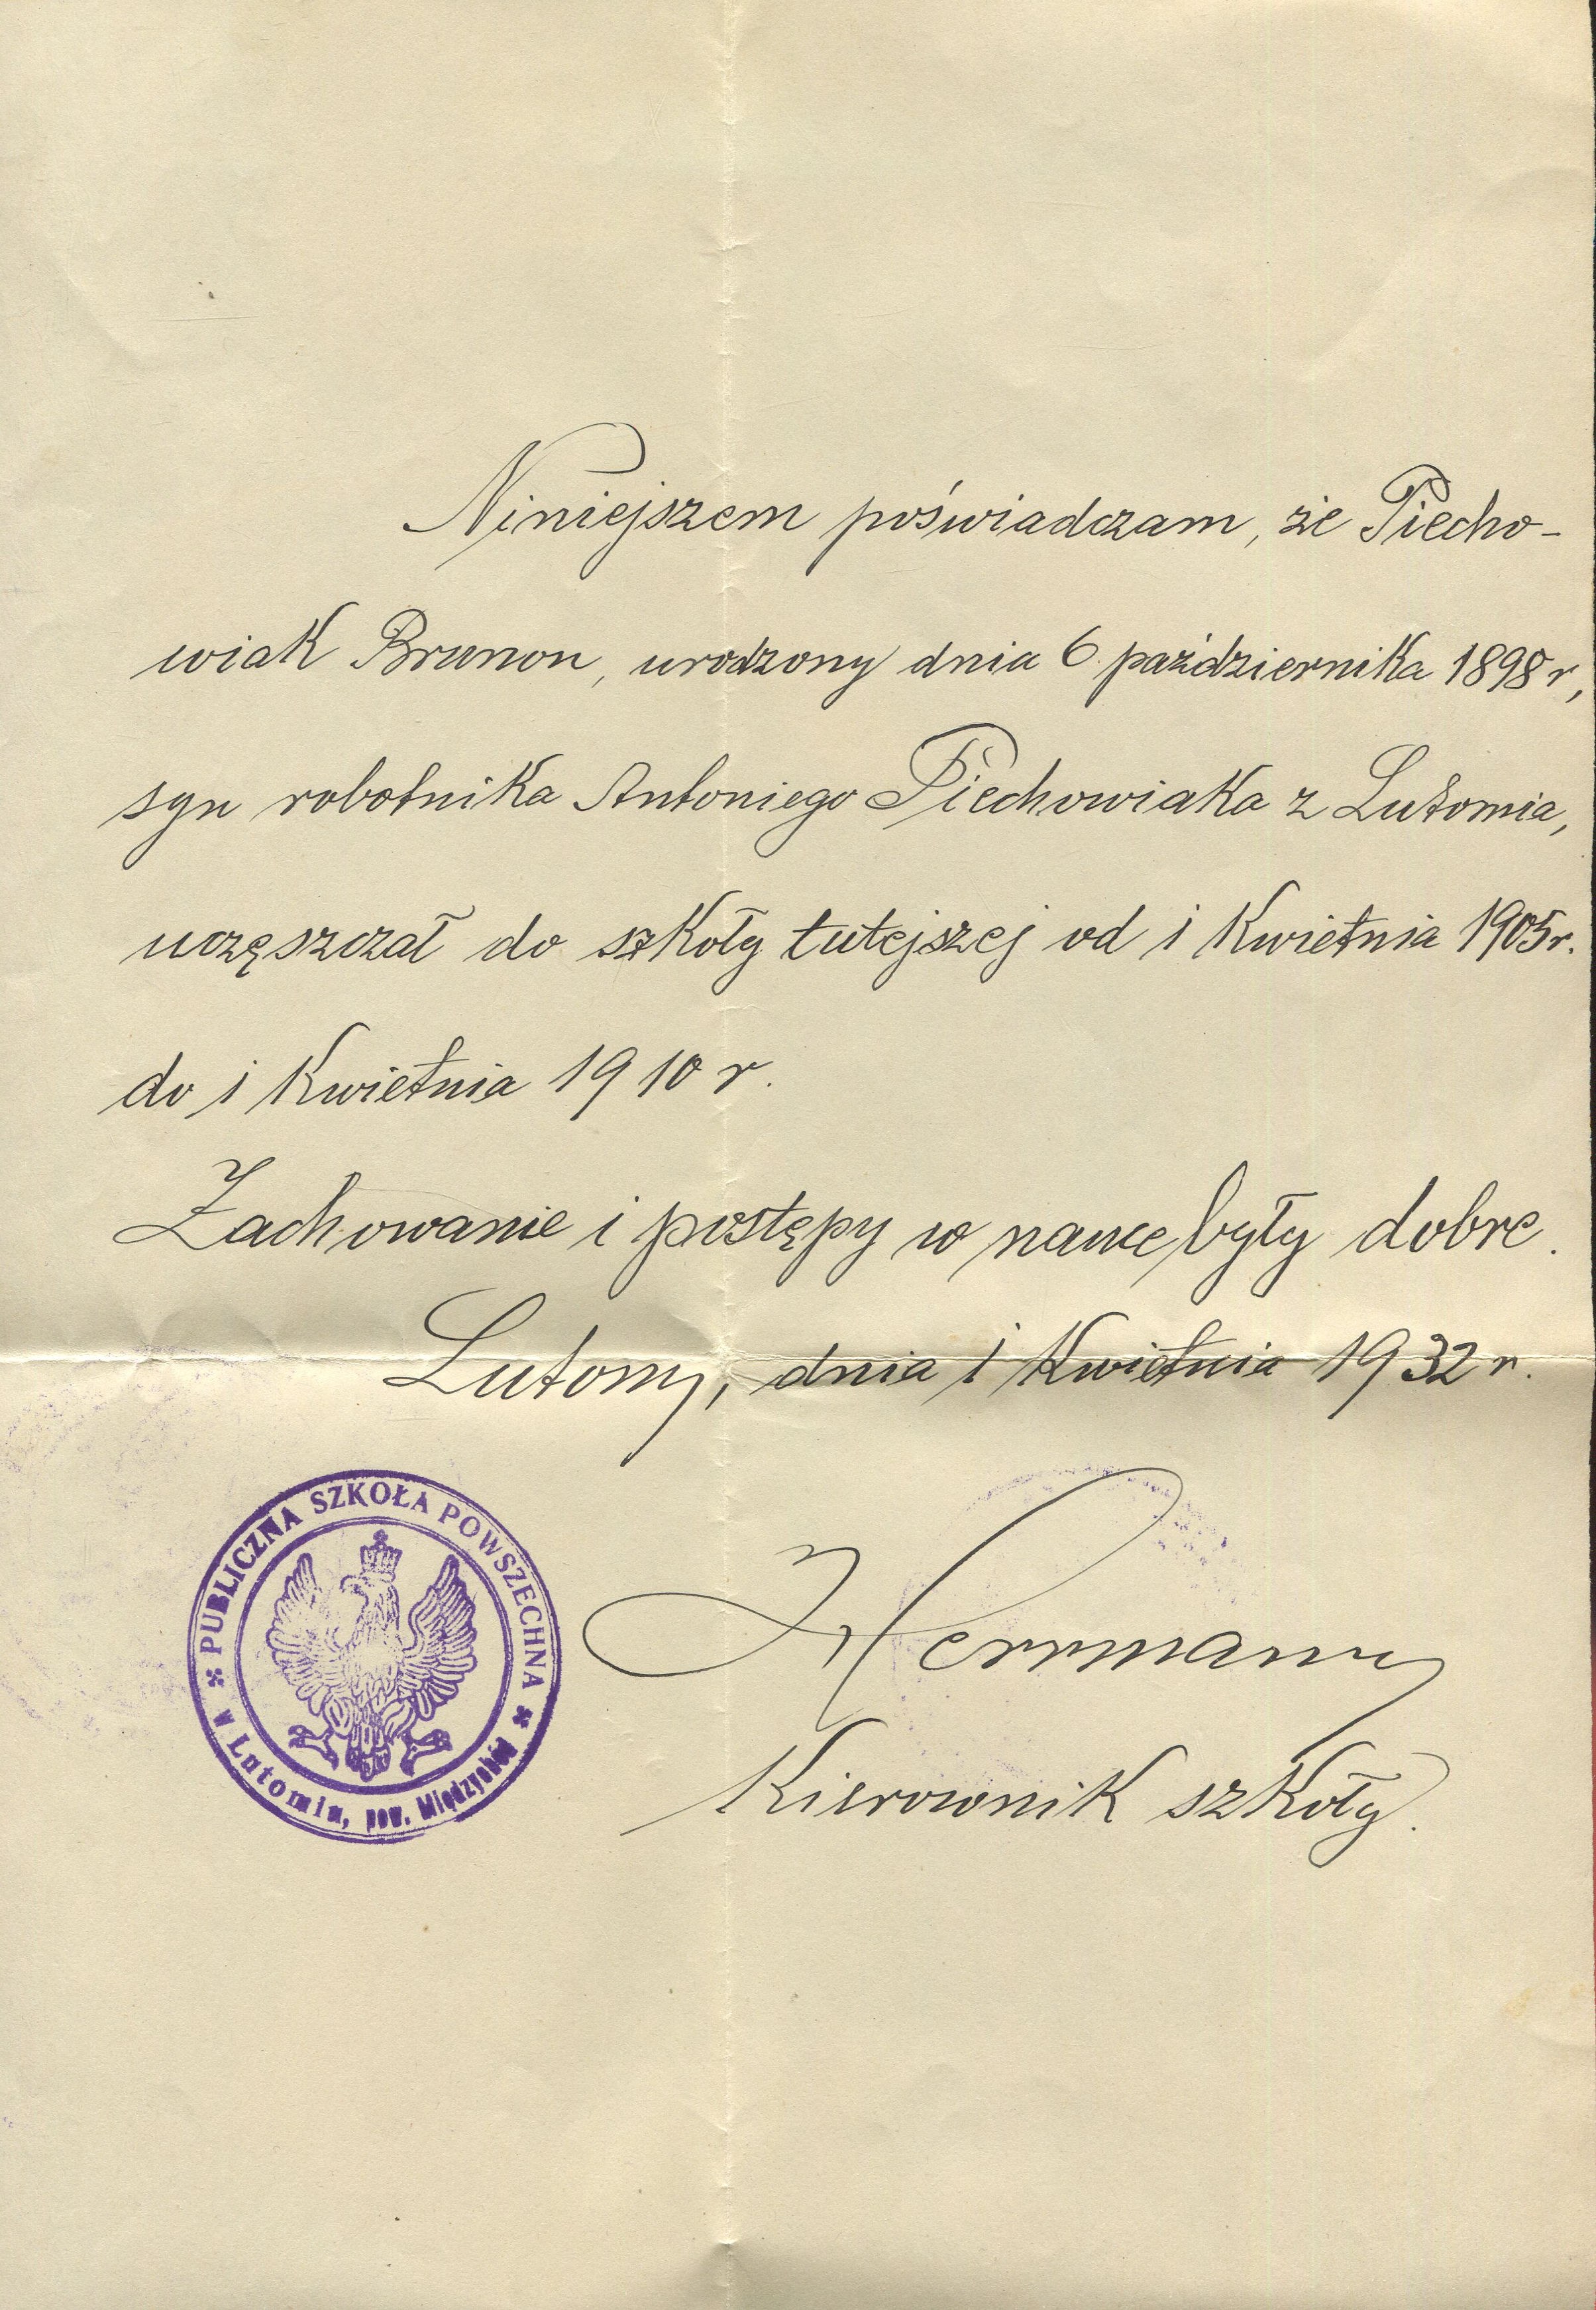 Niniejszem poświadczam, że Piecho-
wiak Brunon, urodzony dnia 6 października 1898 r,
syn robotnika Antoniego Piechowiaka z Lutomia,
uczęszczał do szkoły tutejszej od 1 Kwietnia 1905 r.
do 1 Kwietnia 1910 r.
Zachowanie i postępy w nauce były dobre.
Lutomy, dnia 1 Kwietnia 1932 r.
Herrmann
Kierownik szkoły.
PUBLICZNA SZKOŁA POWSZECHNA
w Lutomiu, pow. Międzychód